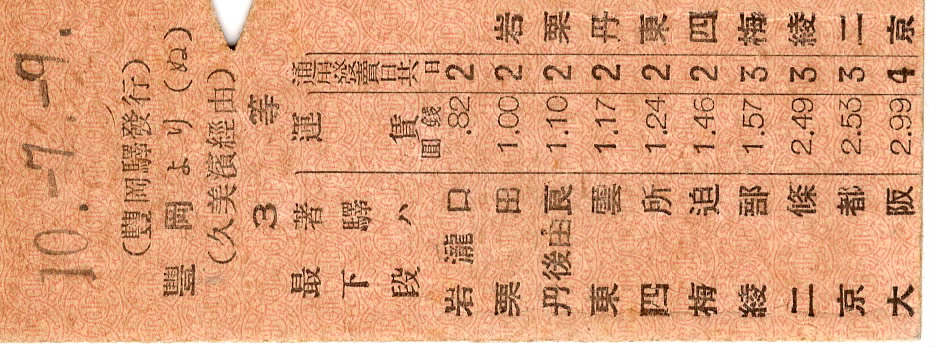 10.-7.-9.
(豐岡驛發行)
豐岡より(ぬ)
(久美濱經由)
3等
通用發賣日共
運賃
著驛ハ
最下段
圓錢 日
岩瀧口 .82 2
栗田 1.00 2 岩
丹後由良 1.10 2 栗
東雲 1.17 2 丹
四所 1.24 2 東
梅迫 1.46 2 四
綾部 1.57 3 梅
二條 2.49 3 綾
京都 2.53 3 二
大阪 2.99 4 京